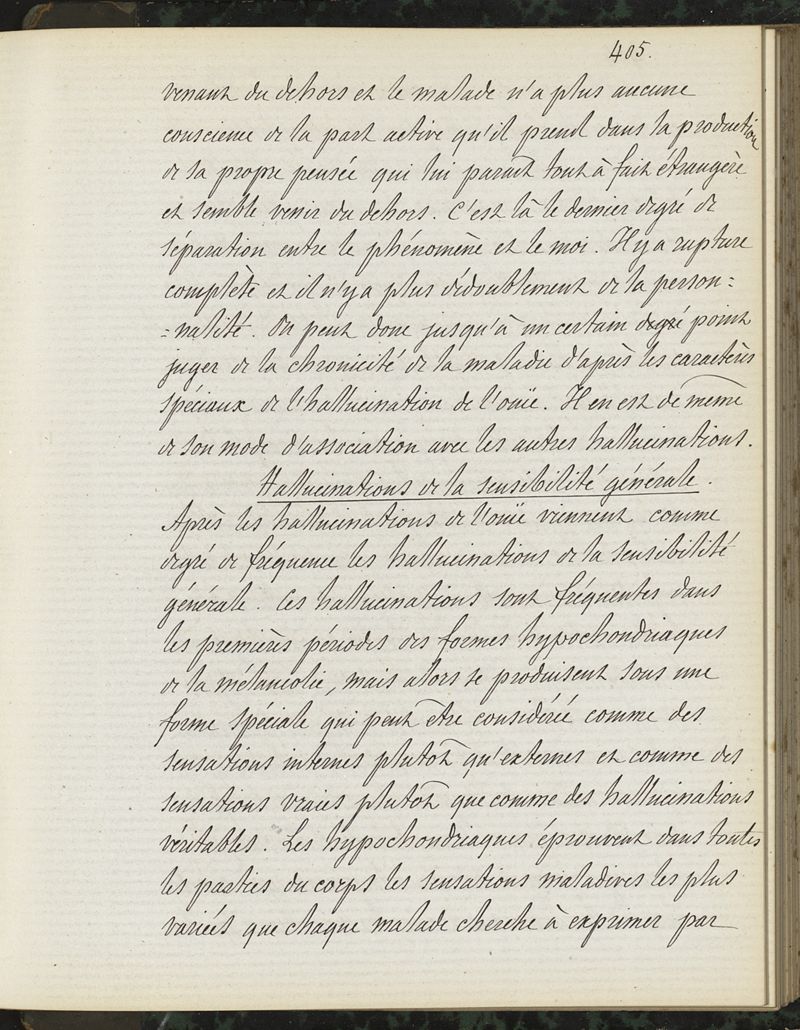 405.
venant du dehors et le malade n'a plus aucune
conscience de la part active qu'il prend dans la production
de sa propre pensée qui lui parait tout à fait étrangère
et semble venir du dehors. C'est là le dernier degré de
séparation entre le phénomène et le moi. Il y a rupture
complète et il n'y a plus dédoublement de la person=
=nalité. On peut donc jusqu'à un certain degré point
juger de la chronicité de la maladie d'après les caractères
spéciaux de l'hallucination de l'ouïe. Il en est de même
de son mode d'association avec les autres hallucinations.
Hallucinations de la sensibilité générale.
Après les hallucinations de l'ouïe viennent comme
degré de fréquence les hallucinations de la sensibilité
générale. Ces hallucinations sont fréquentes dans
les premières périodes des formes hypochondriaques
de la mélancolie, mais alors se produisent sous une
forme spéciale qui peut être considérée comme des
sensations internes plutôt qu'externes et comme des
sensations vraies plutôt que comme des hallucinations
véritables. Les hypochondriaques éprouvent dans toutes
les parties du corps les sensations maladives les plus
variées que chaque malade cherche à exprimer par